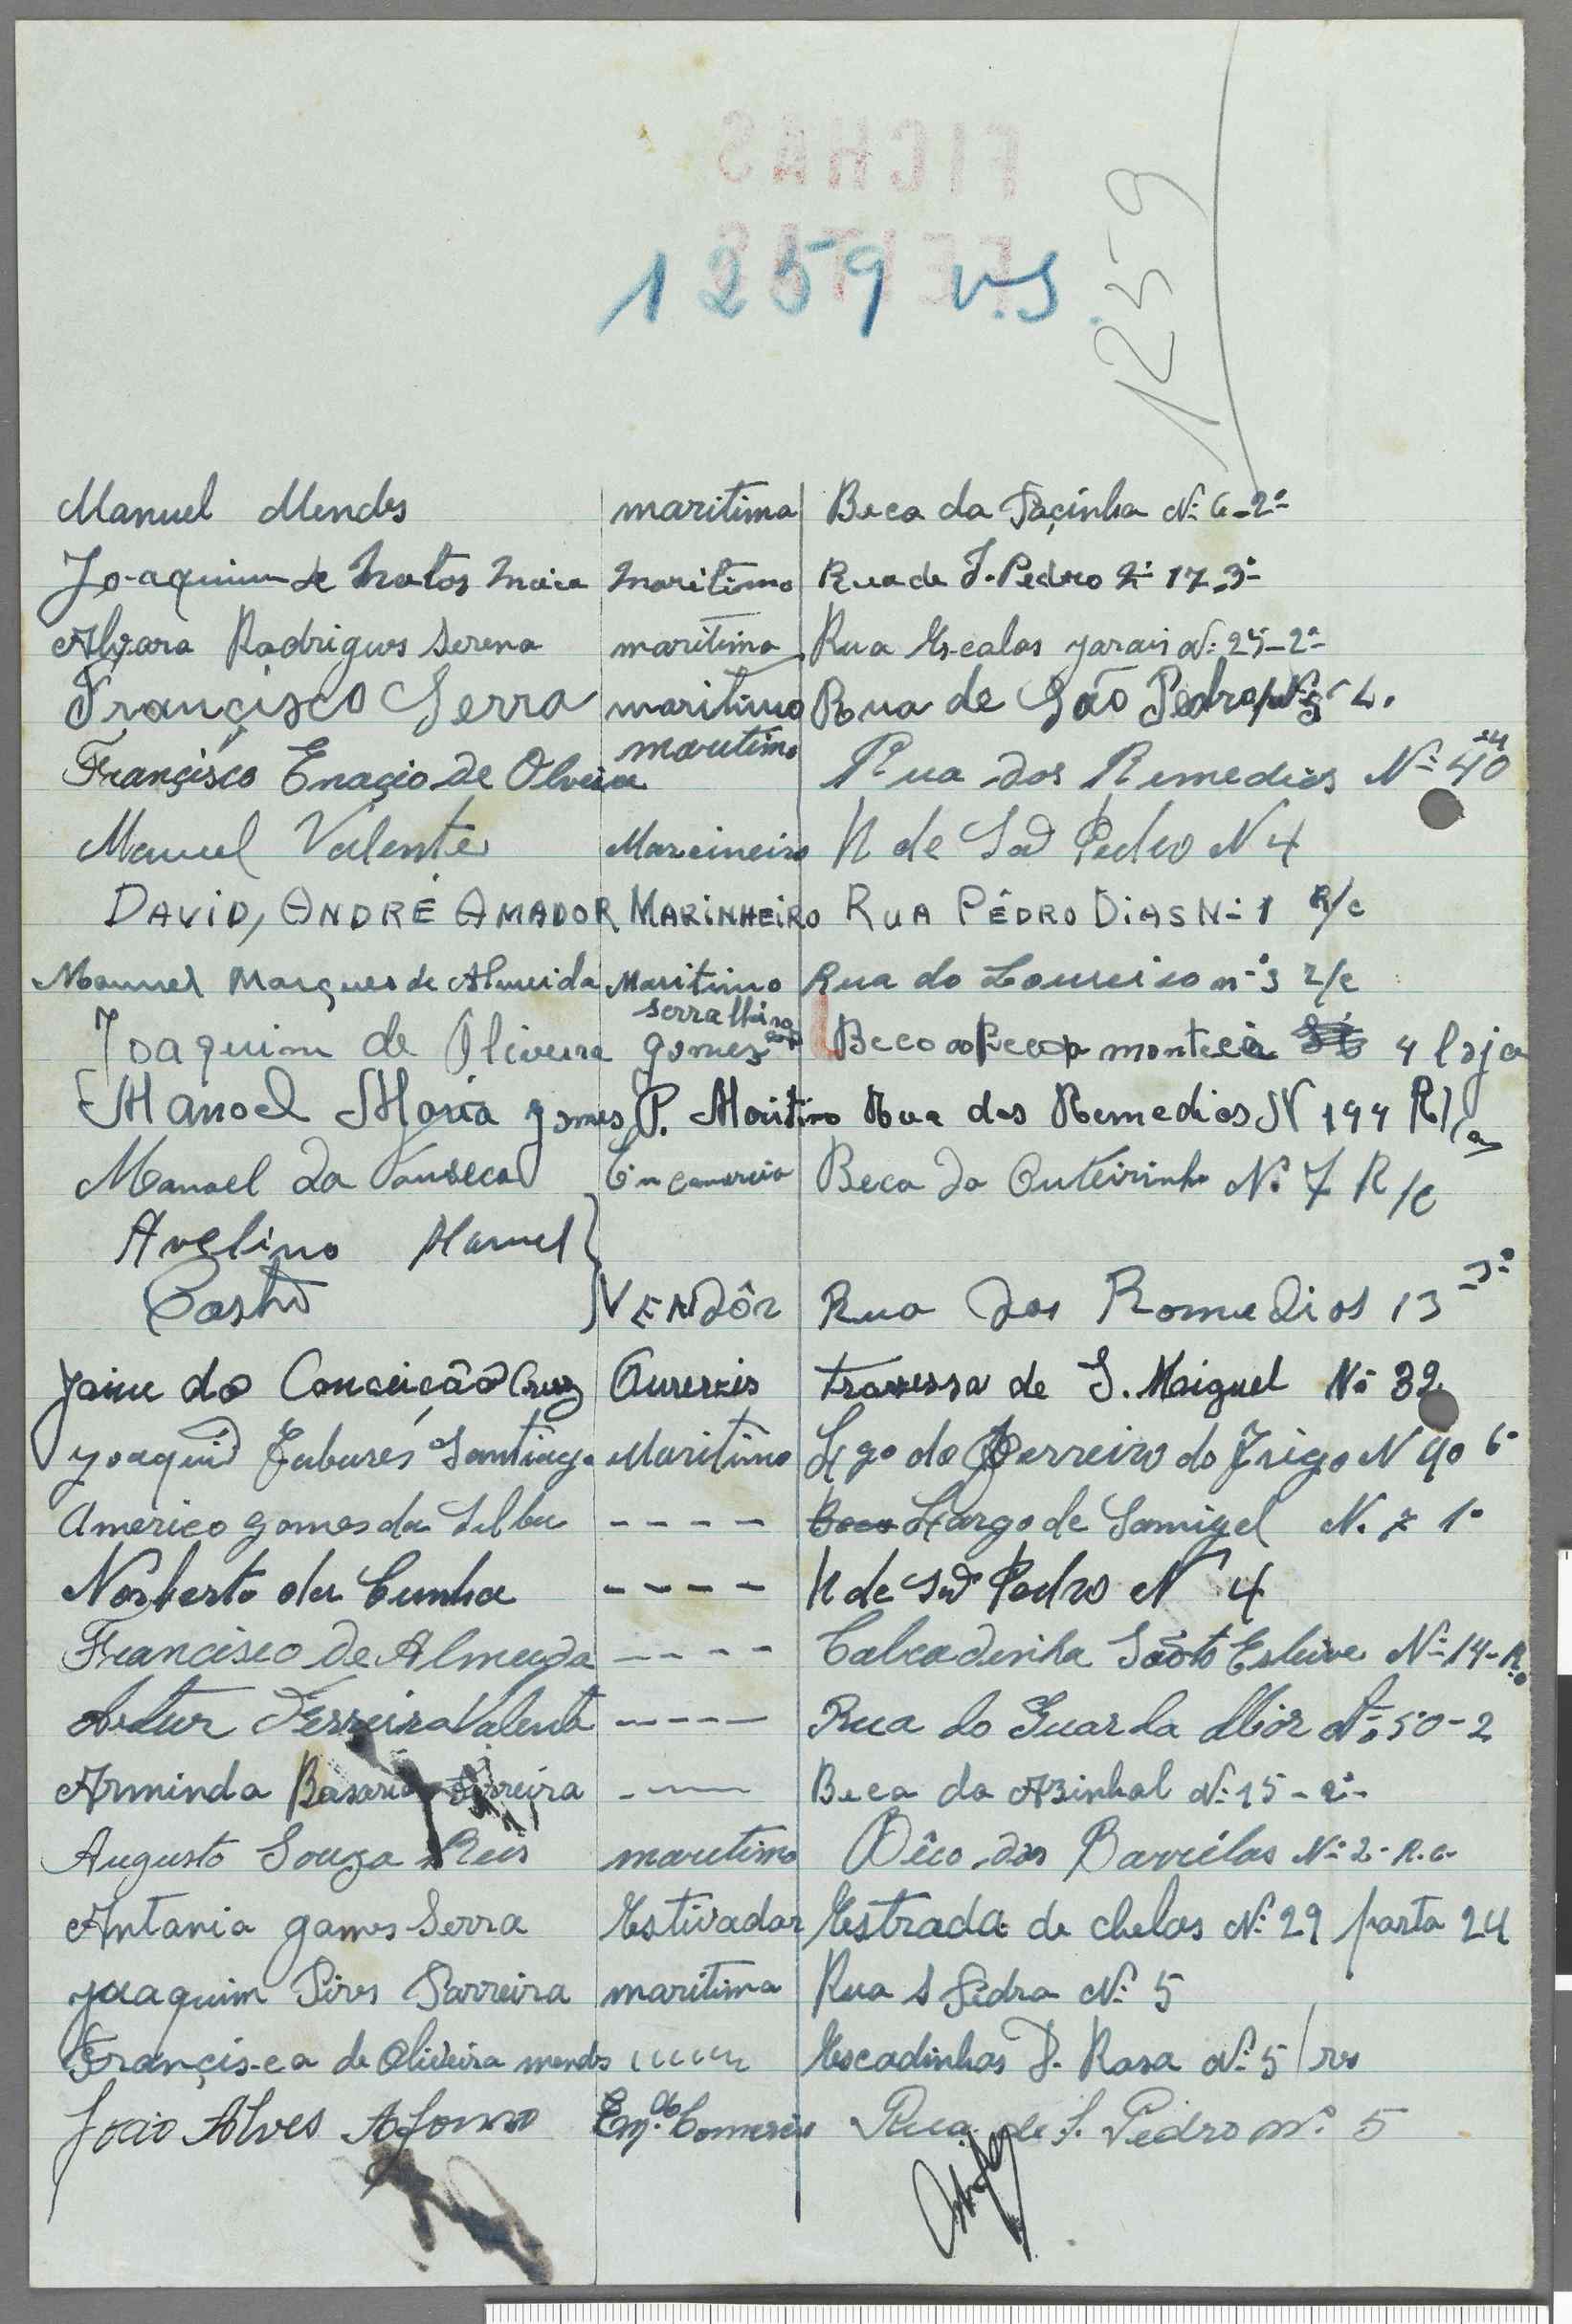 FICHAS
FEITAS
1259 v.S.
1259
Manuel Mendes maritimo Beco da Lapinha Nº 6-2º
Joaquim de Matos Maia Maritimo Rua de S. Pedro Nº 17-3º
Alvaro Rodrigues Serena maritimo Rua Escolas Nº 25-2º
Françisco Serra maritimo Rua de São Pedro Nº 5
Françisco Enaçio de Olveira maritimo Rua dos Remedios Nº 40
Manuel Valente Marcineiro R de São Pedro N 4
DAVID, ANDRÉ AMADOR MARINHEIRO RUA PÉDRO DIAS Nº 1 R/c
Manuel Marques de Almeida Maritimo Rua do Loureiro nº 3 r/c
Joaquim de Oliveira gomes serralheiro Beco 4 loja
Manoel Maria gomes P. Maritimo Rua dos Remedios N 194 R/
Manoel da Fonseca Em comercio Beco do Outeirinho Nº 7 R/c
Avelino Manuel
Castro VENDÔR Rua dos Romedios 13-3º
Jaime da Conceicão Cruz Ourives travessa de S. Maiguel Nº 32
Joaquim Tabarés Santiago Maritimo Lgo do Terreiro do Trigo N 40 6º
Americo gomes da Silba ---- Beco Largo de Samigel N. 7 1º
Norberto da Cunha ---- R de São Pedro Nº 4
Francisco de Almeyda ---- Calcadinha Santo Esteive Nº 14-R.
Artur Ferreira Valente ---- Rua do Guarda Mór Nº 50-2
Armindo Ferreira ---- Beco do Azinhal Nº 15-2º
Augusto Souza Reis maritimo Bêco dos Barrélas Nº 2-R.c.
Antonio gomes Serra Estivador Estrada de chelas Nº 29 porta 24
joaquim Pires Parreira maritimo Rua S Pedro Nº 5
Françisco de Oliveira mendes Escadinhas D. Rosa Nº 5
João Alves Afonso Emp.do Comercio Rua de S. Pedro nº 5